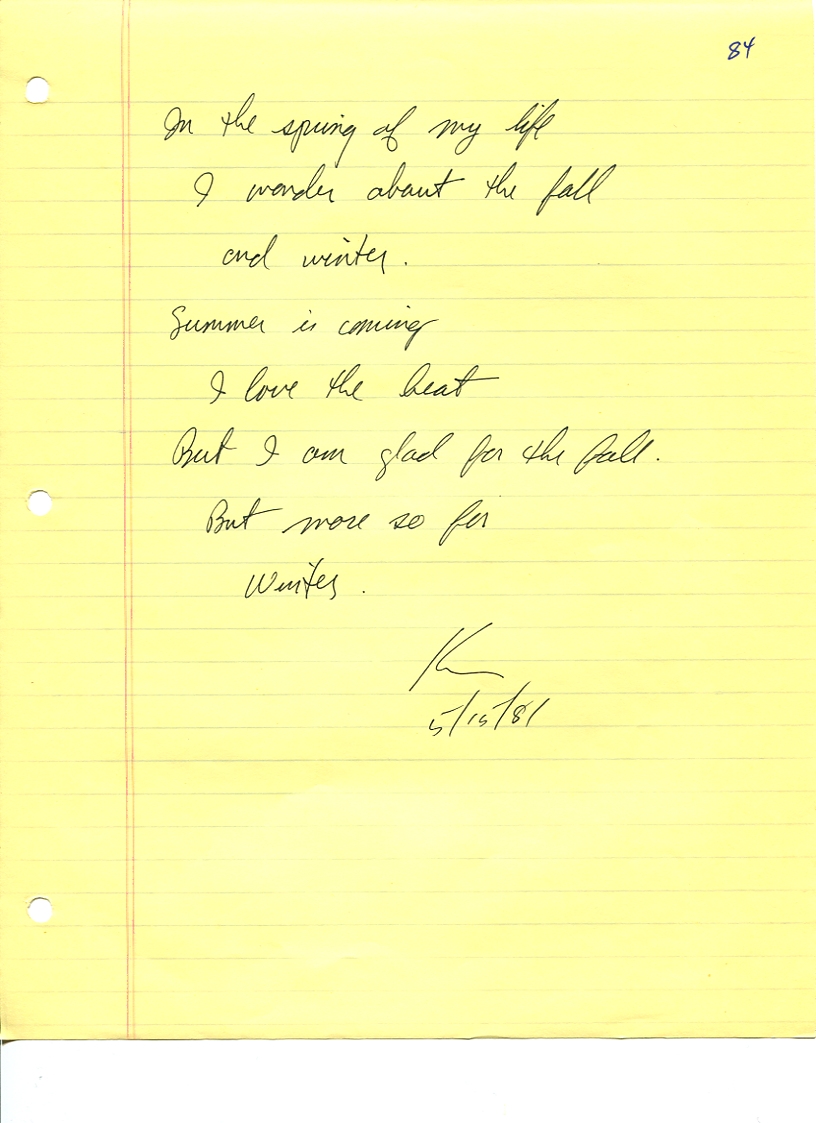 84
In the spring of my life
I wonder about the fall
and winter.
Summer is coming
I love the heat
But I am glad for the fall.
But more so for
Winter.
5/15/81